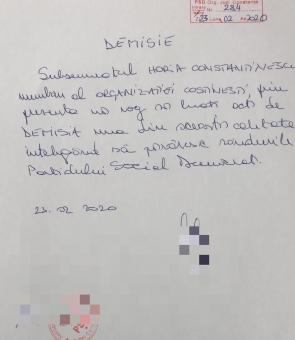 PSD Org. Jud. Constanța
Nr. 284
23 Luna 02 2020
DEMISIE
Subsemnatul HORIA CONSTANTINESCU
membru al ORGANIZATIEI COSTINESTI, prin
prezenta vă rog să luati act de
DEMISIA mea din această calitate
intelegând să părăsesc rândurile
Partidului Social Democrat.
23.02 2020